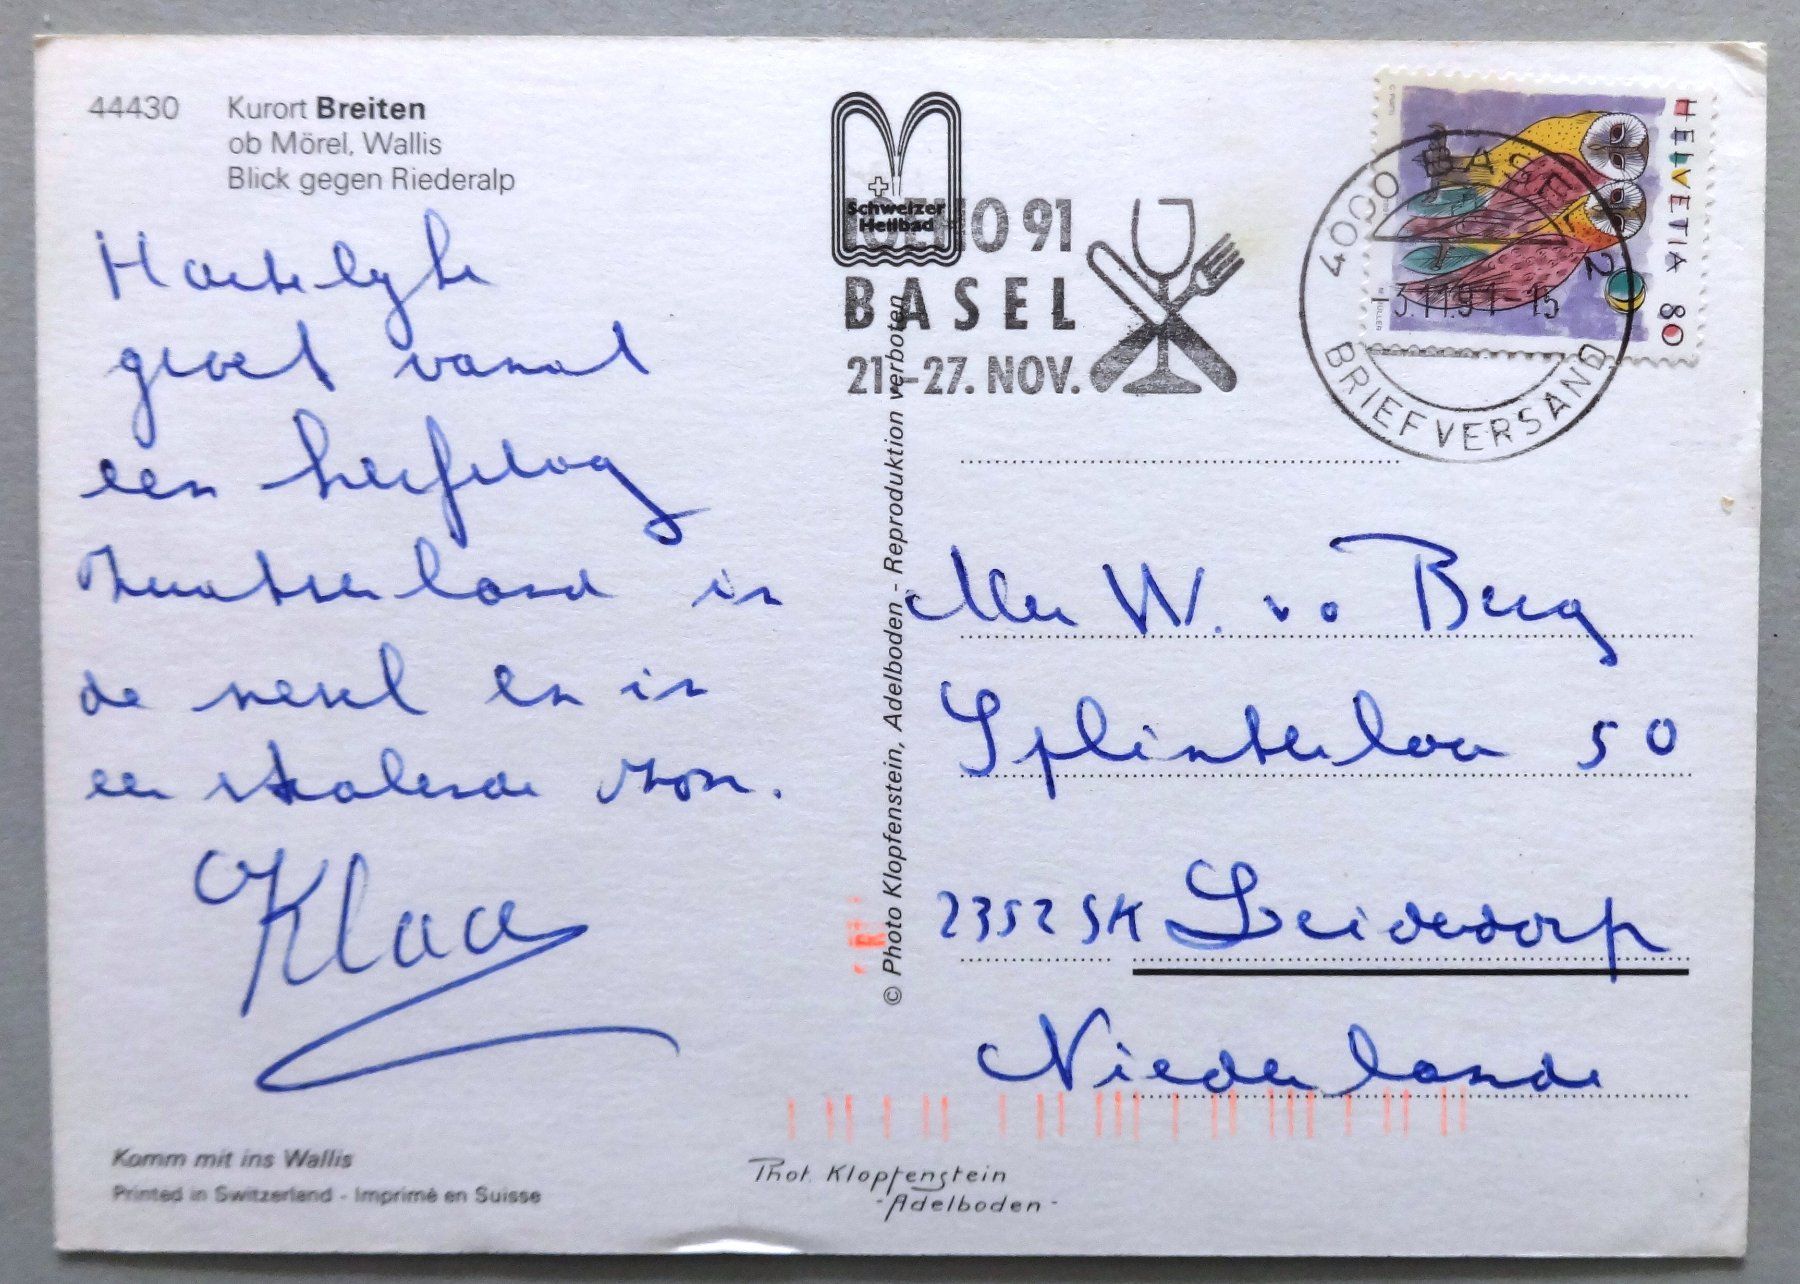 44430 Kurort Breiten
ob Mörel, Wallis
Blick gegen Riederalp
Hartelijke
groet vanuit
een herfstdag
Zwitserland in
de nevel en in
een stralende zon.
Klaas
Komm mit ins Wallis
Printed in Switzerland - Imprimé en Suisse
Schweizer
Heilbad
IGEHO 91
BASEL
21.-27. NOV.
© Photo Klopfenstein, Adelboden - Reproduktion verboten
HELVETIA 80
4000 BASEL 2
13.11.91-15
BRIEFVERSAND
W. v. d. Berg
Splinterlaan 50
2352 SK Leiderdorp
Niederlande
Phot. Klopfenstein
-Adelboden-